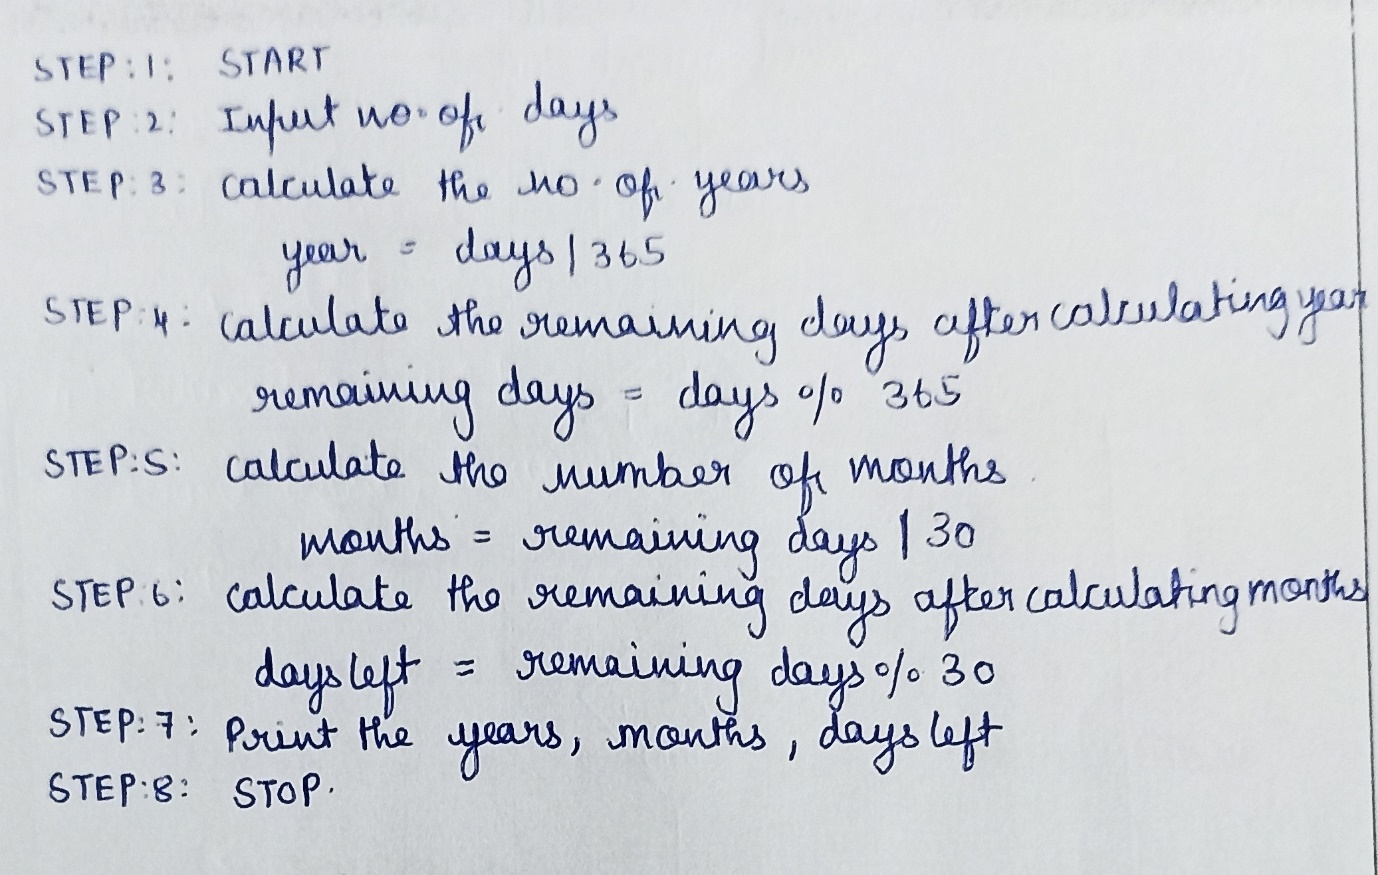 STEP:1: START
STEP:2: Input no. of days
STEP:3: calculate the no. of years
year = days / 365
STEP:4: calculate the remaining days after calculating year
remaining days = days % 365
STEP:5: calculate the number of months
months = remaining days / 30
STEP:6: calculate the remaining days after calculating months
days left = remaining days % 30
STEP:7: Print the years, months, days left
STEP:8: STOP.